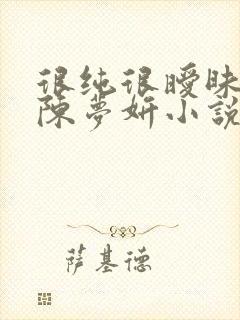 很纯很曖昧
陳夢妍小說
萨基德